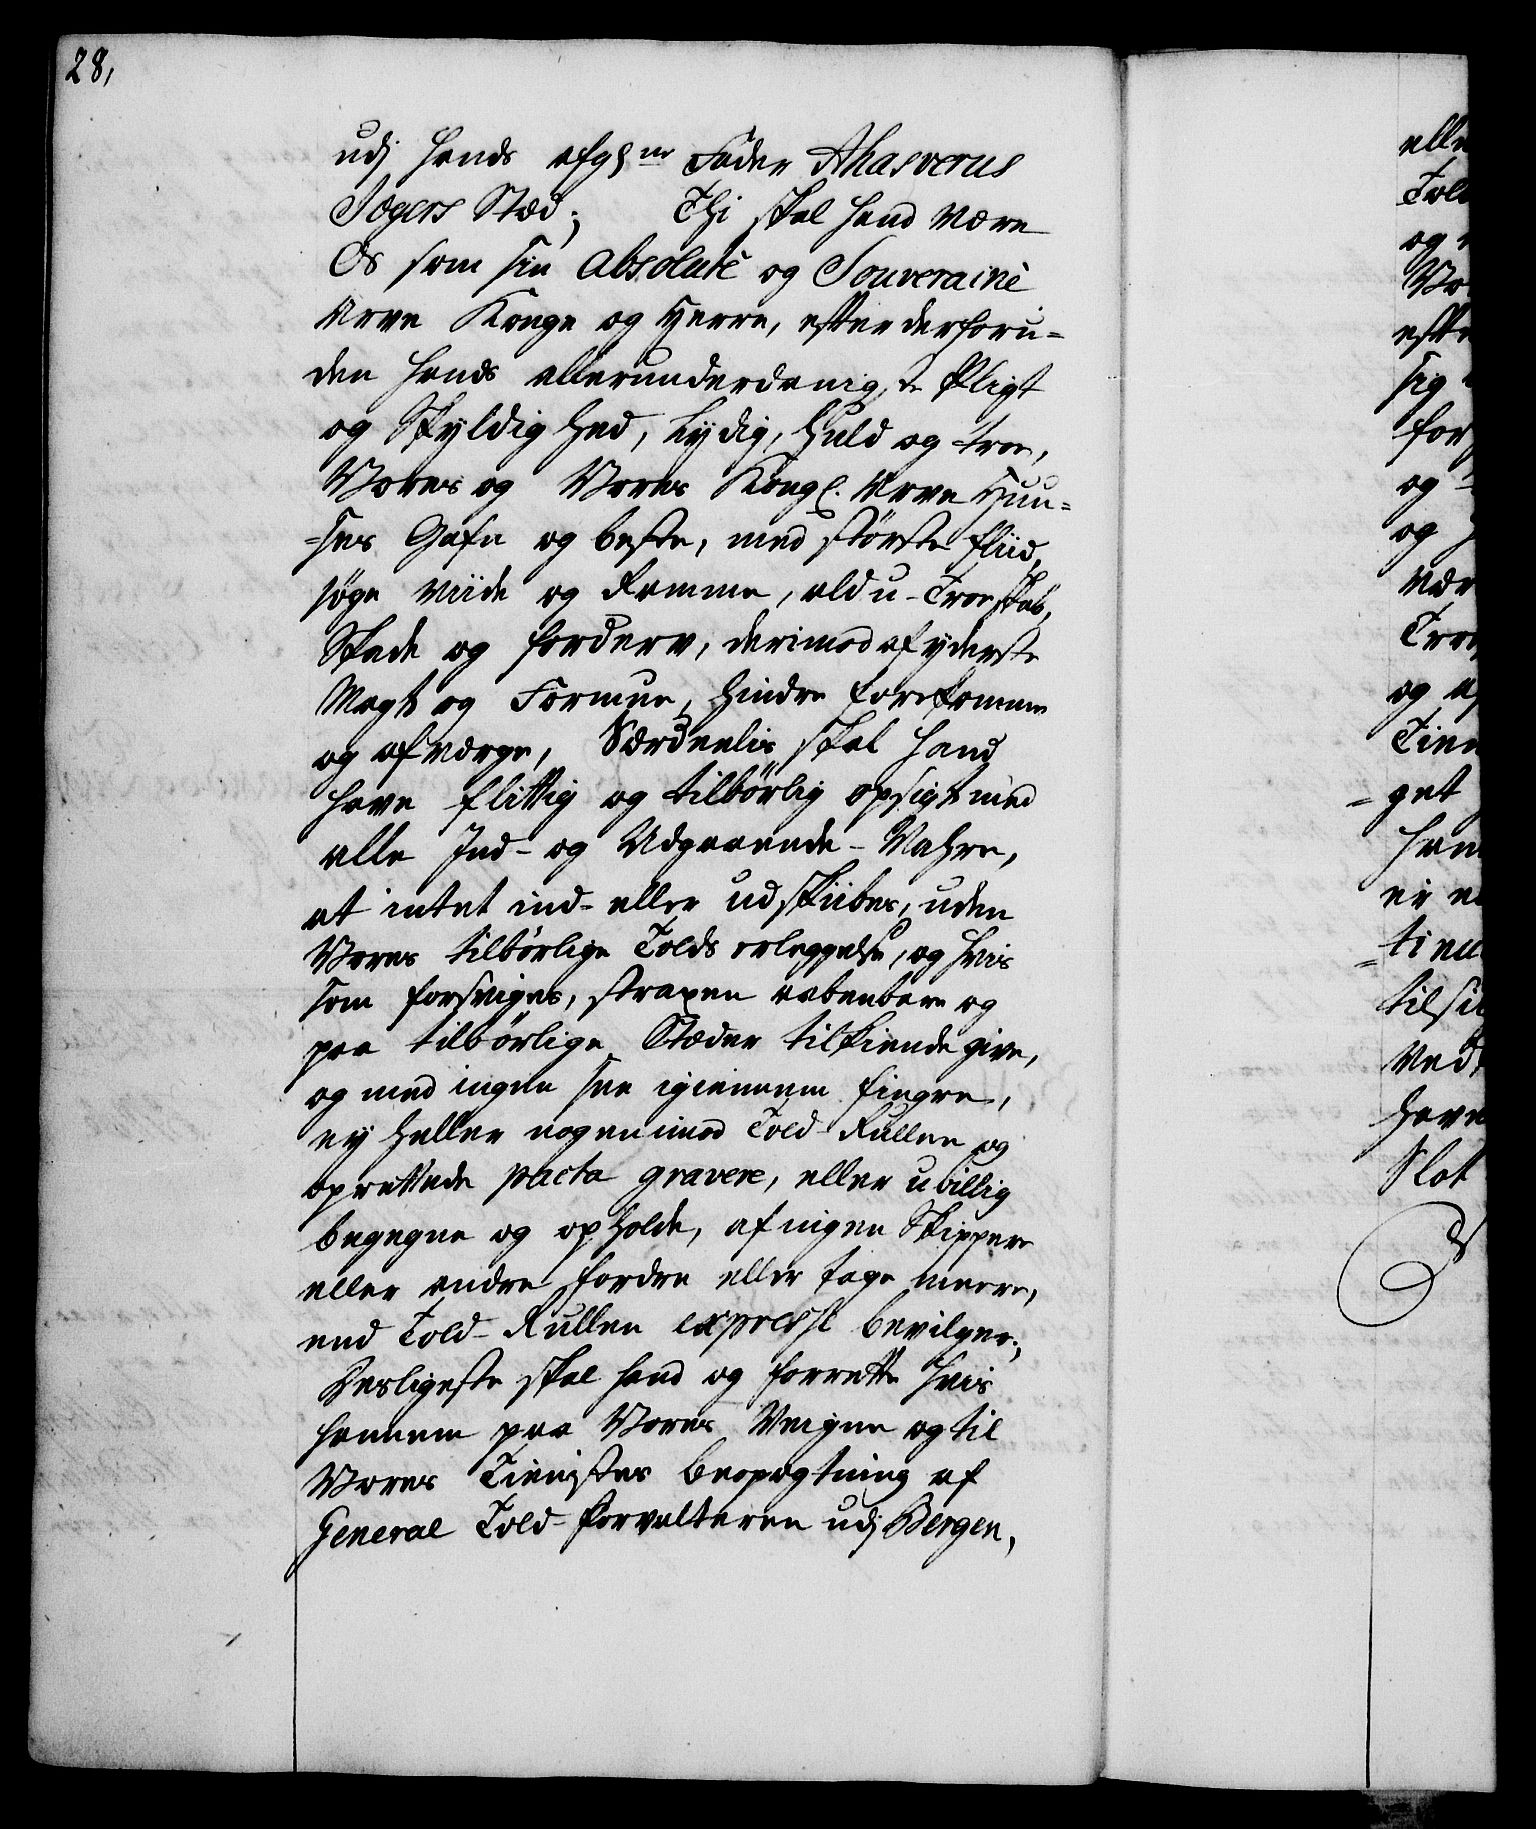 28,
udj hands afgh<sup>ne</sup> Fader Ahasverus
Jægers Stæd; Thi skal hand være
Os som sin Absolute og Souveraine
Arve Konge og Herre, efter derforu-
den hands allerunderdanigste Pligt
og Skyldighed, Lydig, Huld og troe,
Vores og Vores Kongl. Arve Huu-
=ses Gafn og beste, med störste fliid,
söge viide og Ramme, ald u-Troeskab,
Skade og forderv, derimod af yderste
Magt og Formue, hindre forekomme
og afværge, Særdeelis skal hand
have flittig og tilbörlig opsigt med
alle Ind- og Udgaaende-Vahre,
at intet ind- eller udskiibes, uden
Vores tilbörlige Tolds erleggelse, og hvis
som forsviges, straxen aabenbare og
paa tilbörlige Stæder tilkiende give,
og med ingen see igiennem fingre,
ey heller nogen imod Told-Rullen og
oprettede pacta gravere, eller ubillig
begegne og opholde, af nigen Skippere
eller andre fordre eller tage meere,
end Told-Rullen expresst bevilger;
Desligeste skal hand og forrette hvis
hannem paa Vores Veigne og til
Vores Tienistes beopagtning af
General Told-forvalteren udj Bergen,
elle
Tol
og
Vo
efte
sig
for
og
og
vær
Tro
og af
Tien
=get
han
er
=tien
tilsi
ved
have
Slot